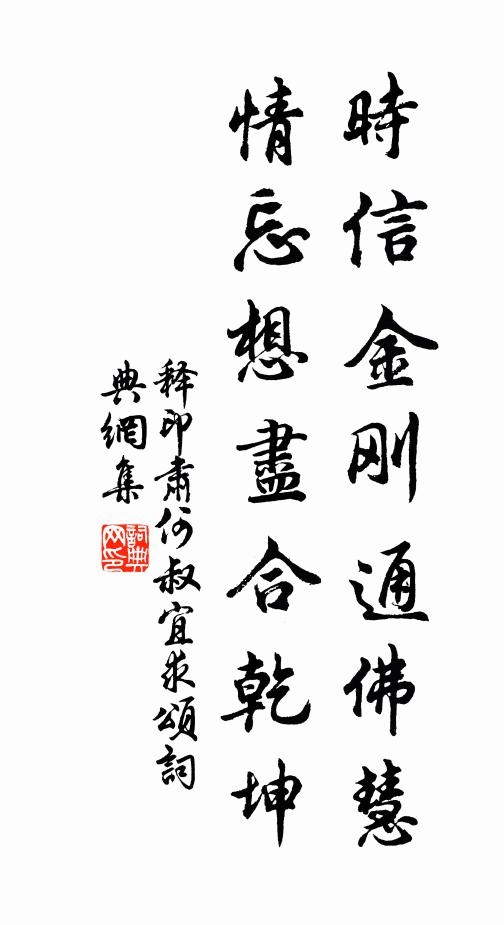 時信金刚通佛慧
情忘想盡合乾坤
释印肃何叔宜求頌詞
典網集
詞典
网印